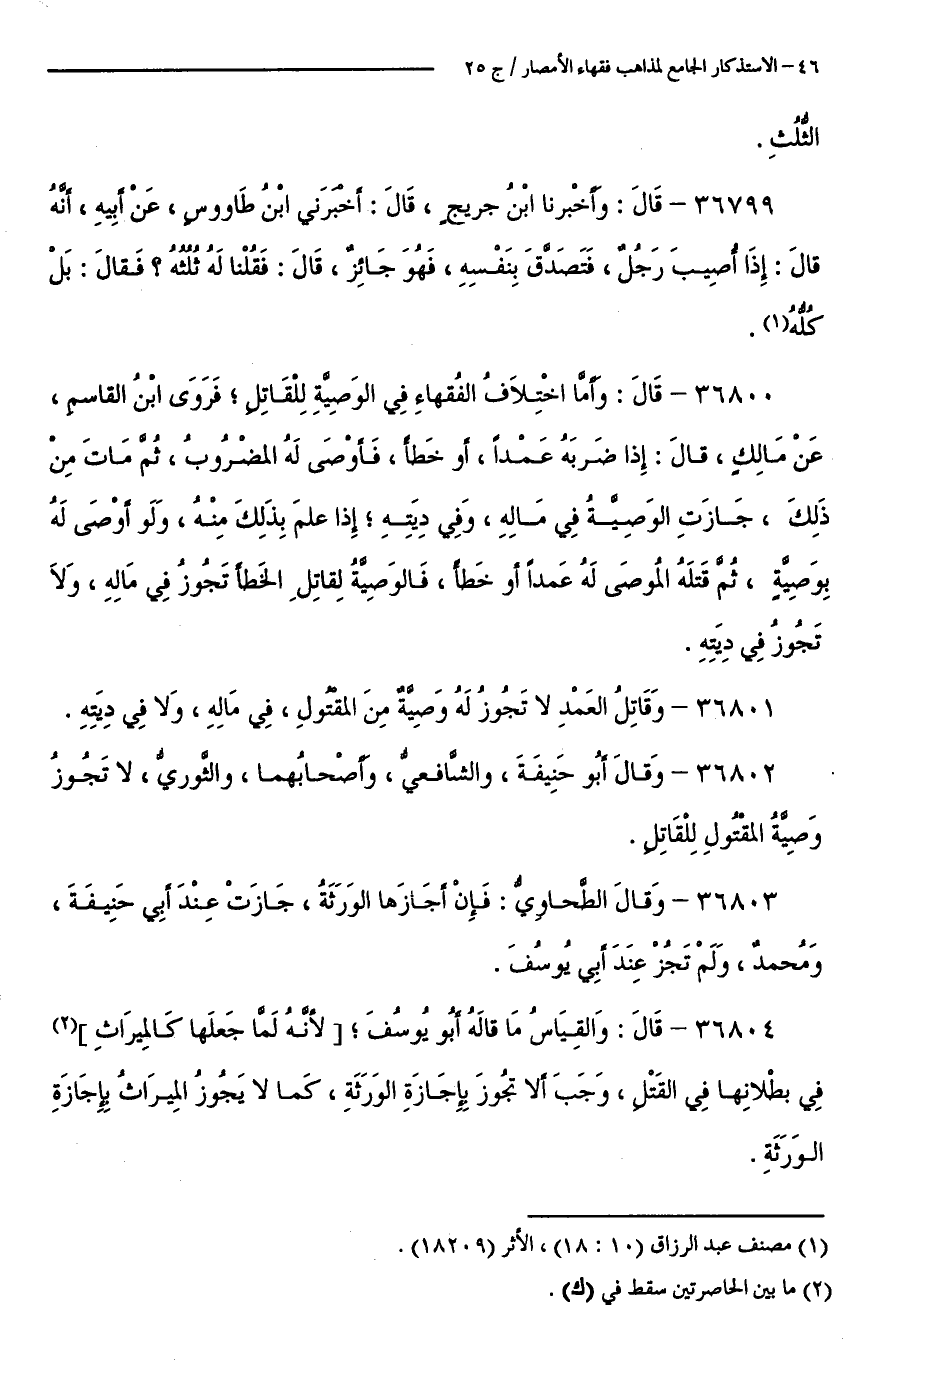 ٤٦ – الاستذكار الجامع لمذاهب فقهاء الأمصار / ج ٢٥
الثُّلُثِ .
٣٦٧٩٩ – قَالَ : وَأَخْبرنا ابْنُ جريجٍ ، قَالَ : أَخْبَرَني ابْنُ طَاووسٍ ، عَنْ أَبِيهِ ، أَنَّهُ
قالَ : إِذَا أُصِيبَ رَجُلٌ ، فَتَصَدَّقَ بِنَفْسِهِ ، فَهُوَ جَائِزٌ ، قَالَ : فَقُلْنا لَهُ ثُلُثُهُ ؟ فَقالَ : بَلْ
كُلُّهُ(١) .
٣٦٨٠٠ – قَالَ : وَأَمَّا اخْتِلَافُ الفُقهاءِ فِي الوَصِيَّةِ لِلْقَاتِلِ ؛ فَرَوَى ابْنُ القاسمِ ،
عَنْ مَالِكٍ ، قالَ : إِذا ضَرَبَهُ عَمْداً ، أو خَطأً ، فَأَوْصَى لَهُ المضْرُوبُ ، ثُمَّ مَاتَ مِنْ
ذَلِكَ ، جَازَتِ الوَصِيَّةُ فِي مَالِهِ ، وَفِي دِيَتِهِ ؛ إِذا علمَ بِذَلِكَ مِنْهُ ، وَلَو أَوْصَى لَهُ
بِوَصِيَّةٍ ، ثُمَّ قَتَلَهُ الْمُوصَى لَهُ عَمداً أو خَطأً ، فَالوَصِيَّةُ لِقاتلِ الخَطأ تَجُوزُ فِي مَالِهِ ، وَلَا
تَجُوزُ فِي دِيَتِهِ .
٣٦٨٠١ – وَقَاتِلُ العَمْدِ لا تَجُوزُ لَهُ وَصِيَّةٌ مِنَ المقْتُولِ ، فِي مَالِهِ ، وَلا فِي دِيَتِهِ .
٣٦٨٠٢ – وَقالَ أَبُو حَنِيفَةَ ، والشَّافعيُّ ، وَأَصْحابُهما ، والثَّوريُّ ، لا تَجُوزُ
وَصِيَّةُ المقْتُولِ لِلْقَاتِلِ .
٣٦٨٠٣ – وَقالَ الطَّحاوِيُّ : فَإِنْ أَجَازَها الوَرَثَةُ ، جَازَتْ عِنْدَ أَبِي حَنِيفَةَ ،
وَمُحمدٌ ، وَلَمْ تَجُزْ عِندَ أَبِي يُوسُفَ .
٣٦٨٠٤ – قَالَ : وَالقِيَاسُ مَا قالَهُ أَبُو يُوسُفَ ؛ [ لأَنَّهُ لَمَّا جَعَلَها كَالمِيرَاثِ ](٢)
فِي بطْلانِها فِي القَتْلِ ، وَجَبَ أَلا تجُوزَ بِإِجَازَةِ الوَرَثَةِ ، كَما لا يَجُوزُ المِيرَاثُ بِإِجَازَةِ
الوَرَثَةِ .
(١) مصنف عبد الرزاق (١٠ : ١٨) ، الأثر (١٨٢٠٩) .
(٢) ما بين الحاصرتين سقط في (ك) .